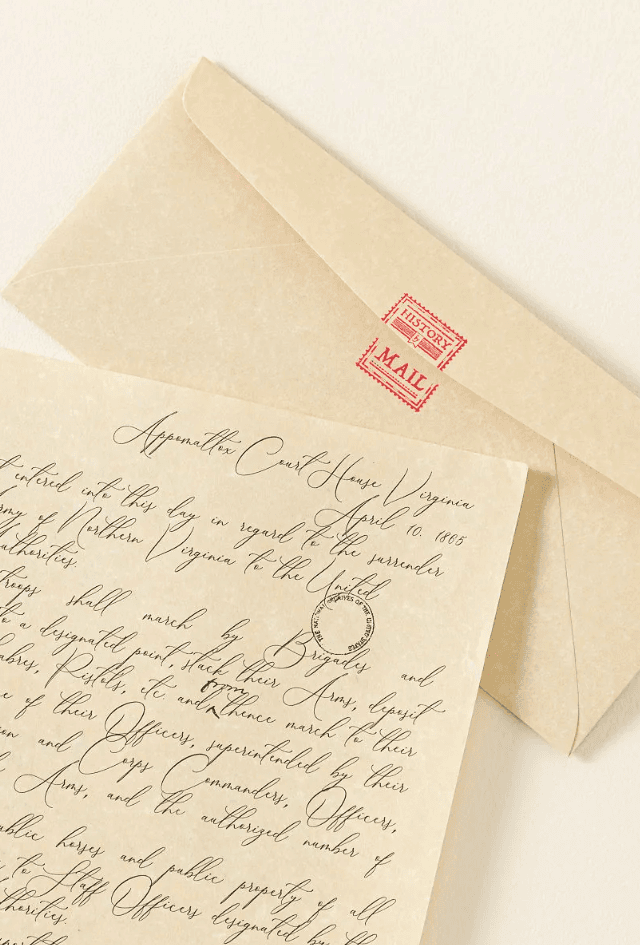 HISTORY
by
MAIL
Appomattox Court House Virginia
April 10. 1865
t entered into this day in regard to the surrender
rmy of Northern Virginia to the United
uthorities.
roops shall march by Brigades and
THE NATIONAL ARCHIVES OF THE UNITED STATES
to a designated point, stack their Arms, deposit
abres, Pistols, etc. and from thence march to their
e of their Officers, superintended by their
on and Corps Commanders, Officers,
Arms, and the authorized number of
ublic horses and public property of all
to Staff Officers designated by the
horities.